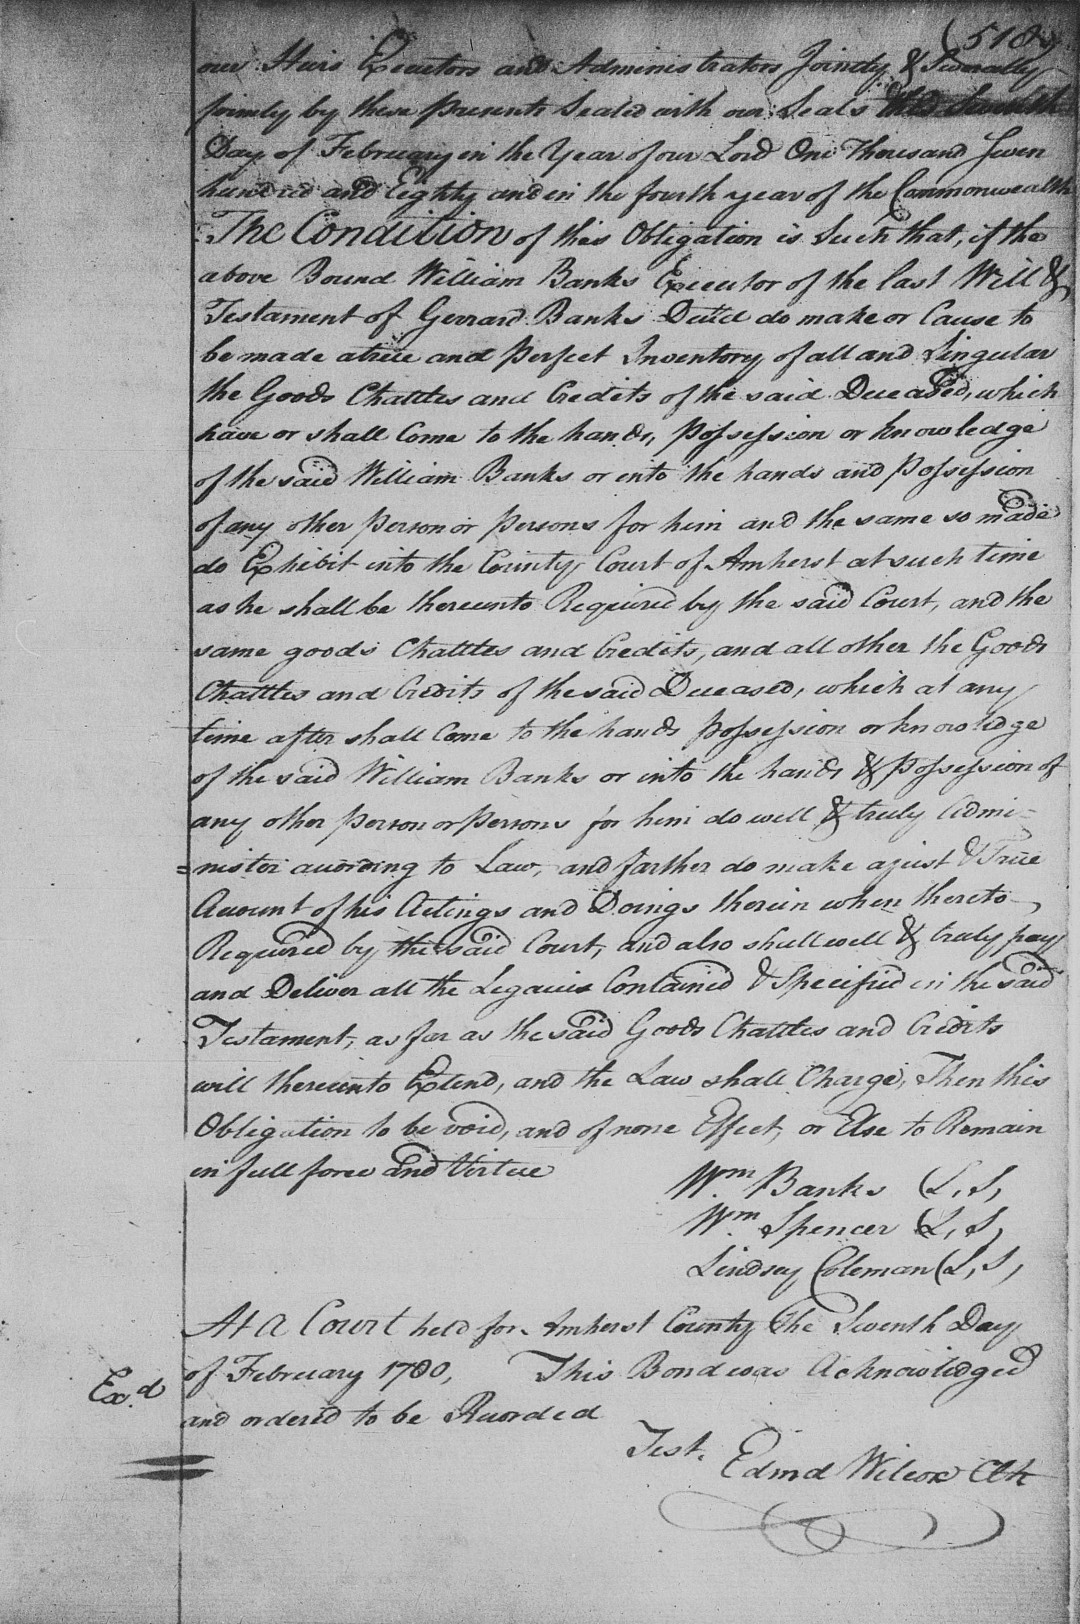 (518)
our Heirs Executors and Administrators Jointly & Severally
firmly by these Presents Sealed with our Seals this Seventh
Day of February in the Year of our Lord One Thousand Seven
hundred and Eighty and in the fourth year of the Commonwealth
The Condition of this Obligation is Such that, if the
above Bound William Banks Executor of the last Will &
Testament of Gerrard Banks Dec'd do make or Cause to
be made a true and perfect Inventory of all and Singular
the Goods Chattles and Credits of the said Deceased, which
have or shall Come to the hands, Possession or knowledge
of the said William Banks or into the hands and Possession
of any other Person or Persons for him and the same so made
do Exhibit into the County Court of Amherst at such time
as he shall be thereunto Required by the said Court, and the
same goods Chattles and Credits, and all other the Goods
Chattles and Credits of the said Deceased, which at any
time after shall Come to the hands Possession or knowledge
of the said William Banks or into the hands & Possession of
any other person or persons for him do well & truly Admi-
=nister according to Law, and farther do make a just & True
Account of his Actings and Doings therein when thereto
Required by the said Court, and also shall well & truly pay
and Deliver all the Legacies Contained & Specified in the said
Testament, as far as the said Goods Chattles and Credits
will thereunto Extend, and the Law shall Charge, Then this
Obligation to be void, and of none Effect, or Else to Remain
in full force and Virtue
Wm. Banks (L, S,
Wm. Spencer (L, S,
Lindsey Coleman (L, S,
At a Court held for Amherst County the Seventh Day
of February 1780, This Bond was Acknowledged
Ex.d
and ordered to be Recorded
Test.
Edmd Wilcox Clk